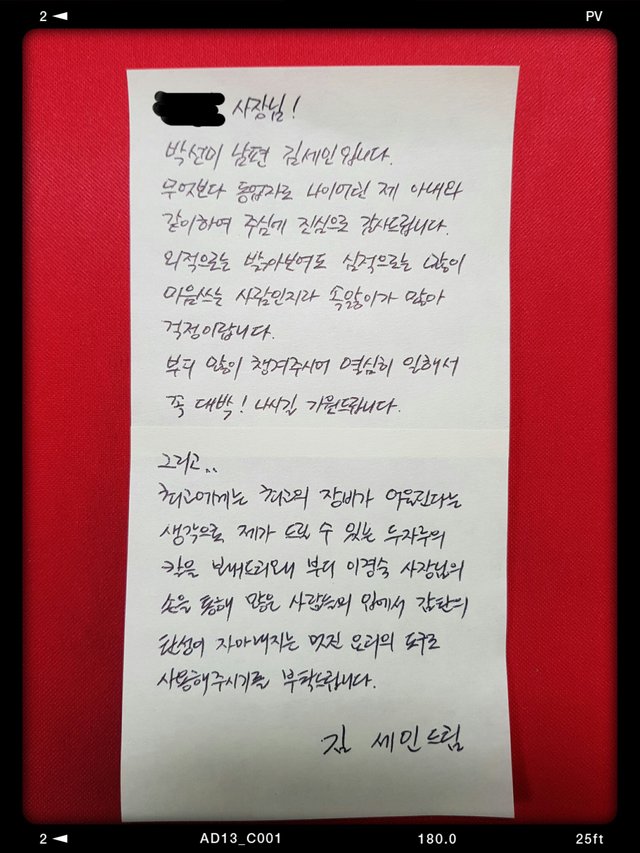 2 ◄ PV
사장님!
박선미 남편 김세인입니다.
무엇보다 동업자로 나이어린 제 아내와
같이하여 주심에 진심으로 감사드립니다.
외적으로는 밝아보여도 실적으로는 많이
마음쓰는 사람인지라 속앓이가 많아
걱정이랍니다.
부디 많이 챙겨주시어 열심히 일해서
꼭 대박! 나시길 기원드립니다.
그리고..
최고에게는 최고의 장비가 어울린다는
생각으로 제가 드릴 수 있는 두자루의
칼을 보내드리오니 부디 이경숙 사장님의
손을 통해 많은 사람들의 입에서 감탄의
탄성이 자아내지는 멋진 요리의 도구로
사용해주시기를 부탁드립니다.
김 세인드림
2 ◄ AD13_C001 180.0 25ft